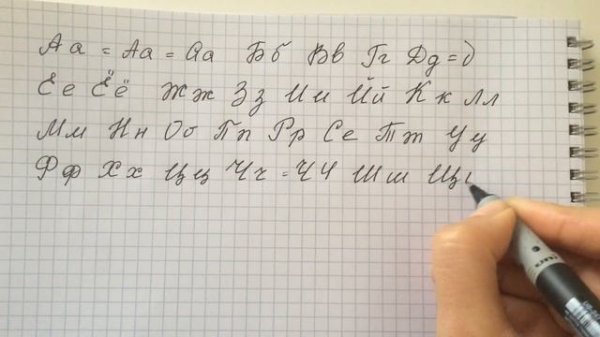 Аа = Аа = Аа Бб Вв Гг Дд = д
Ее Ёё Жж Зз Ии Йй Кк Лл
Мм Нн Оо Пп Рр Сс Тт Уу
Фф Хх Цц Чч = Чч Шш Щ